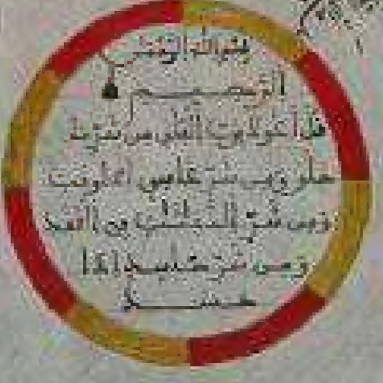 بسم الله الرحمن
الرحيم
قل أعوذ برب الفلق من شر ما
خلق ومن شر غاسق إذا وقب
ومن شر النفاثات في العقد
ومن شر حاسد إذا
حسد